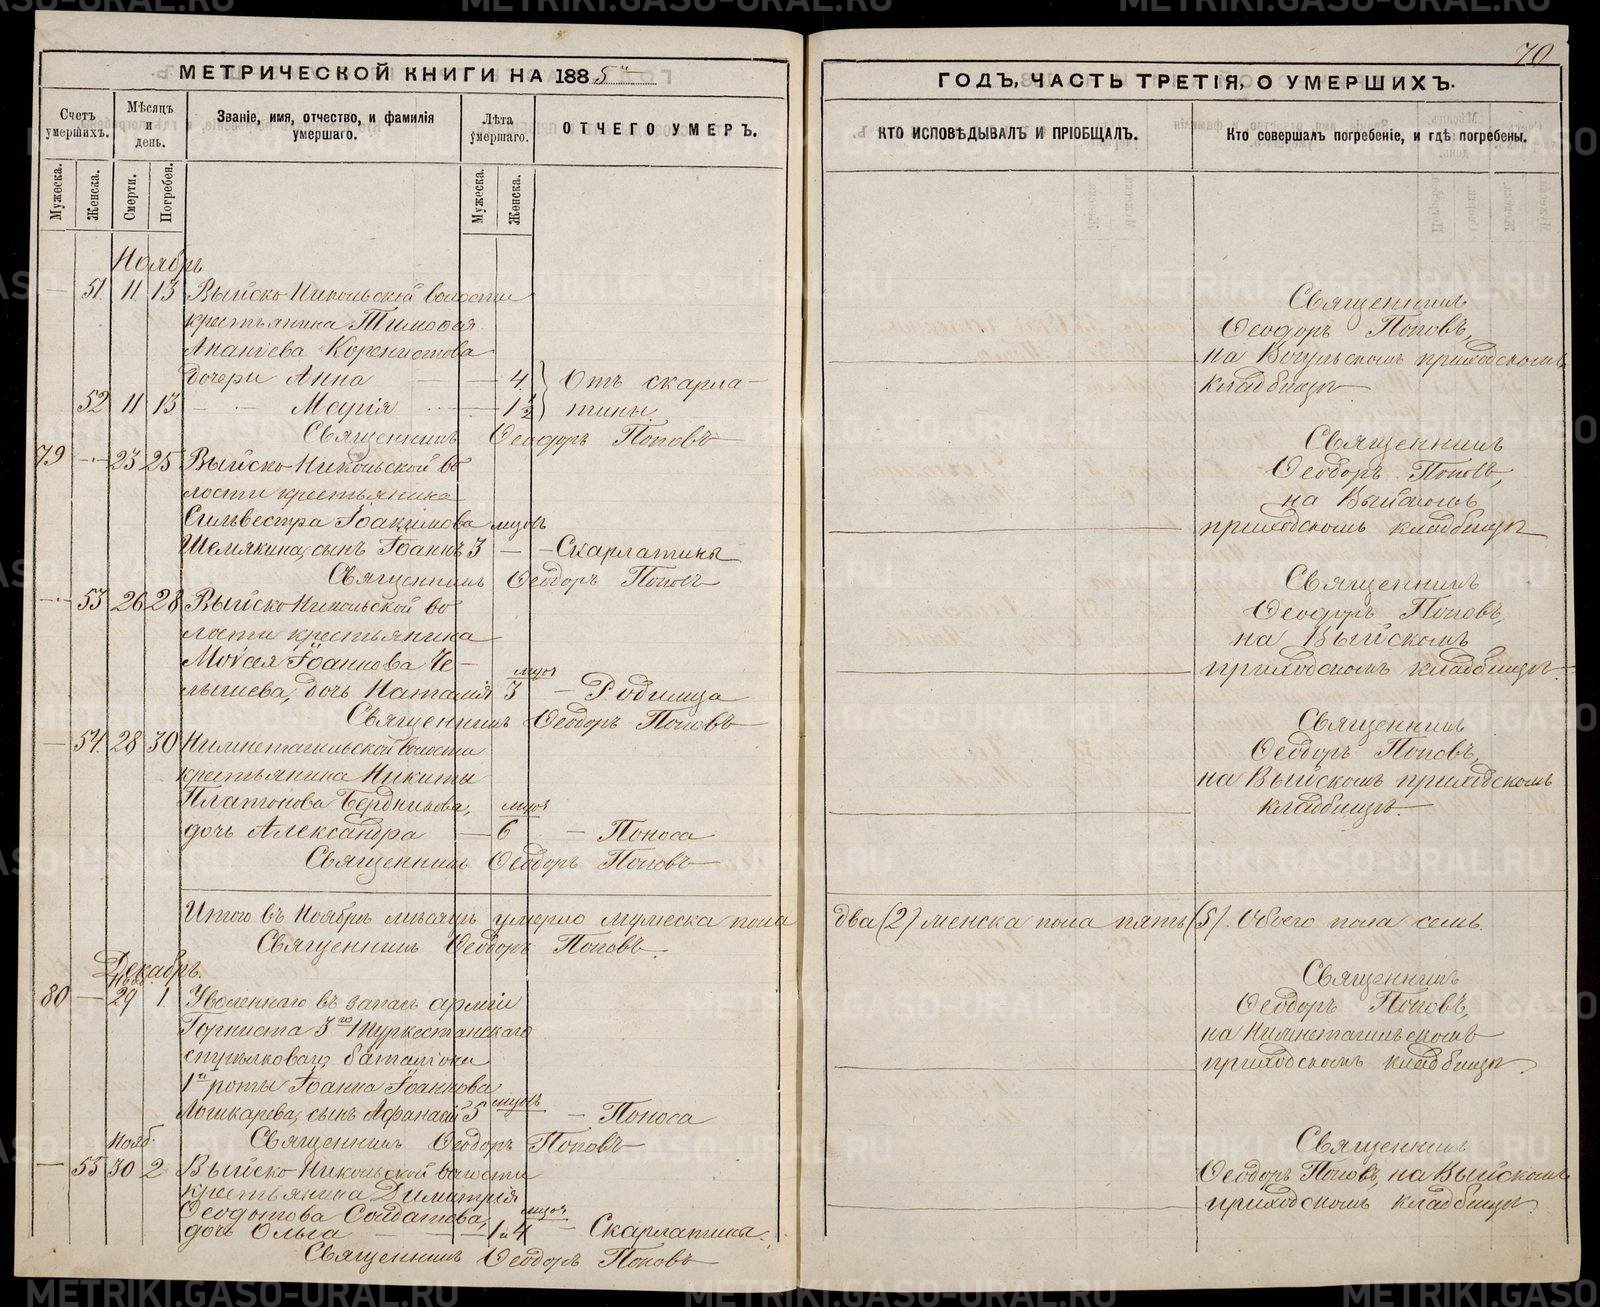 70
МЕТРИЧЕСКОЙ КНИГИ НА 1885й
ГОДЪ, ЧАСТЬ ТРЕТІЯ, О УМЕРШИХЪ.
Счетъ умершихъ.
Мѣсяцъ и день.
Званіе, имя, отчество, и фамилія умершаго.
Лѣта умершаго.
ОТЧЕГО УМЕРЪ.
КТО ИСПОВѢДЫВАЛЪ И ПРІОБЩАЛЪ.
Кто совершалъ погребеніе, и гдѣ погребены.
Мужеска.
Женска.
Смерти.
Погребен.
Мужеска.
Женска.
Ноябрь
— 51 11 13 Выйско-Никольской волости
крестьянина Тимофея
Ананіева
дочери Анна — 4 Отъ скарла-
52 11 13 — Марія — 1 1/2 тины
Священникъ Ѳеодоръ Поповъ
Священникъ
Ѳеодоръ Поповъ,
на приходскомъ
кладбищѣ
79 — 23 25 Выйско-Никольской во
лости крестьянина
Сильвестра Іоакимова мцовъ
Шемякина, сынъ Іоаннъ 3 — Скарлатины
Священникъ Ѳеодоръ Поповъ
Священникъ
Ѳеодоръ Поповъ,
на Выйскомъ
приходскомъ кладбищѣ
— 53 26 28 Выйско-Никольской во
лости крестьянина
Моѵсея Іоаннова Че-
лышева, дочь Наталія 3 мцов — Родимца
Священникъ Ѳеодоръ Поповъ
Священникъ
Ѳеодоръ Поповъ,
на Выйскомъ
приходскомъ кладбищѣ.
— 54 28 30 Нижнетагильской волости
крестьянина Никиты
Платонова Бердникова, мцов
дочь Александра — 6 — Поноса
Священникъ Ѳеодоръ Поповъ
Священникъ
Ѳеодоръ Поповъ,
на Выйскомъ приходскомъ
кладбищѣ.
Итого въ Ноябрѣ мѣсяцѣ умерло мужеска пола два (2) женска пола пять (5). Обоего пола семь.
Священникъ Ѳеодоръ Поповъ.
Декабрь.
Нояб.
80 — 29 1 Уволеннаго въ запасъ арміи
Горниста 3го Туркестанскаго
стрѣлковаго баталіона
1й роты Іоанна Іоаннова
Лошкарева, сынъ Афанасій 5 мцовъ — Поноса
Священникъ Ѳеодоръ Поповъ
Священникъ
Ѳеодоръ Поповъ,
на Нижнетагильскомъ
приходскомъ кладбищѣ.
Нояб.
— 55 30 2 Выйско-Никольской волости
крестьянина Димитрія
Ѳеодотова Солдатова, мцов
дочь Ольга — 1 и 4 — Скарлатина.
Священникъ Ѳеодоръ Поповъ
Священникъ
Ѳеодоръ Поповъ, на Выйскомъ
приходскомъ кладбищѣ.
METRIKI.GASO-URAL.RU